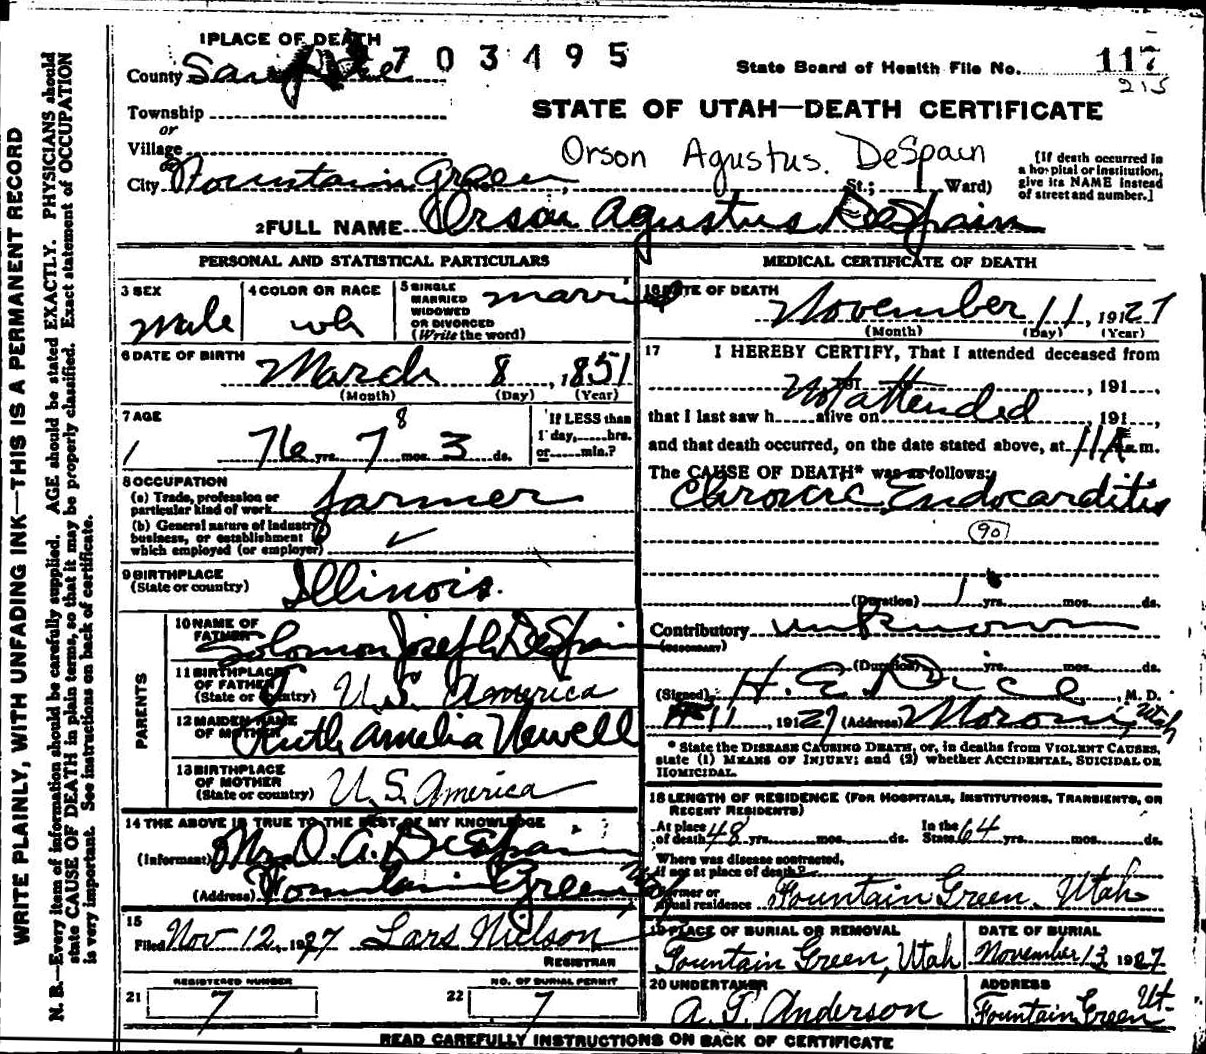 WRITE PLAINLY, WITH UNFADING INK—THIS IS A PERMANENT RECORD
N. B.—Every item of information should be carefully supplied. AGE should be stated EXACTLY. PHYSICIANS should
state CAUSE OF DEATH in plain terms, so that it may be properly classified. Exact statement of OCCUPATION
is very important. See instructions on back of certificate.
1 PLACE OF DEATH
703495
County Sanpete
State Board of Health File No. 117
215
Township
STATE OF UTAH—DEATH CERTIFICATE
or
Village
Orson Agustus. DeSpain
or
City Fountain Green, St.; Ward)
[If death occurred in
a hospital or institution,
give its NAME instead
of street and number.]
2 FULL NAME Orson Agustus DeSpain
PERSONAL AND STATISTICAL PARTICULARS
3 SEX
Male
4 COLOR OR RACE
wh
5 SINGLE
MARRIED
WIDOWED
OR DIVORCED
(Write the word)
married
6 DATE OF BIRTH
March 8, 1851
(Month) (Day) (Year)
7 AGE
76 yrs. 7 mos. 3 ds.
8
If LESS than
1 day,......hrs.
or......min.?
8 OCCUPATION
(a) Trade, profession or
particular kind of work farmer
(b) General nature of industry
business, or establishment in
which employed (or employer)
9 BIRTHPLACE
(State or country) Illinois.
PARENTS
10 NAME OF
FATHER Solomon Joseph DeSpain
11 BIRTHPLACE
OF FATHER
(State or country) U.S. America
12 MAIDEN NAME
OF MOTHER Ruth Amelia Newell
13 BIRTHPLACE
OF MOTHER
(State or country) U.S. America
14 THE ABOVE IS TRUE TO THE BEST OF MY KNOWLEDGE
(Informant) O. A. DeSpain
(Address) Fountain Green
15
Filed Nov 12, 1927 Lars Nielson
REGISTRAR
REGISTERED NUMBER
21 7
NO. OF BURIAL PERMIT
22 7
MEDICAL CERTIFICATE OF DEATH
16 DATE OF DEATH
November 11, 1927
(Month) (Day) (Year)
17 I HEREBY CERTIFY, That I attended deceased from
Not attended, 191
that I last saw h......alive on, 191
and that death occurred, on the date stated above, at 11 A.m.
The CAUSE OF DEATH* was as follows:
Chronic Endocarditis
90
(Duration) 1 yrs. mos. ds.
Contributory unknown
(SECONDARY)
(Duration) yrs. mos. ds.
(Signed) H. E. Rice, M. D.
11, 1927 (Address) Moroni, Utah
* State the DISEASE CAUSING DEATH, or, in deaths from VIOLENT CAUSES,
state (1) MEANS OF INJURY; and (2) whether ACCIDENTAL, SUICIDAL OR
HOMICIDAL.
18 LENGTH OF RESIDENCE (FOR HOSPITALS, INSTITUTIONS, TRANSIENTS, OR
RECENT RESIDENTS)
At place
of death 48 yrs. mos. ds.
In the
State 64 yrs. mos. ds.
Where was disease contracted,
if not at place of death?
Former or
usual residence Fountain Green. Utah
19 PLACE OF BURIAL OR REMOVAL
Fountain Green, Utah
DATE OF BURIAL
November 13 1927
20 UNDERTAKER
ADDRESS
Anderson
Fountain Green Ut.
READ CAREFULLY INSTRUCTIONS ON BACK OF CERTIFICATE